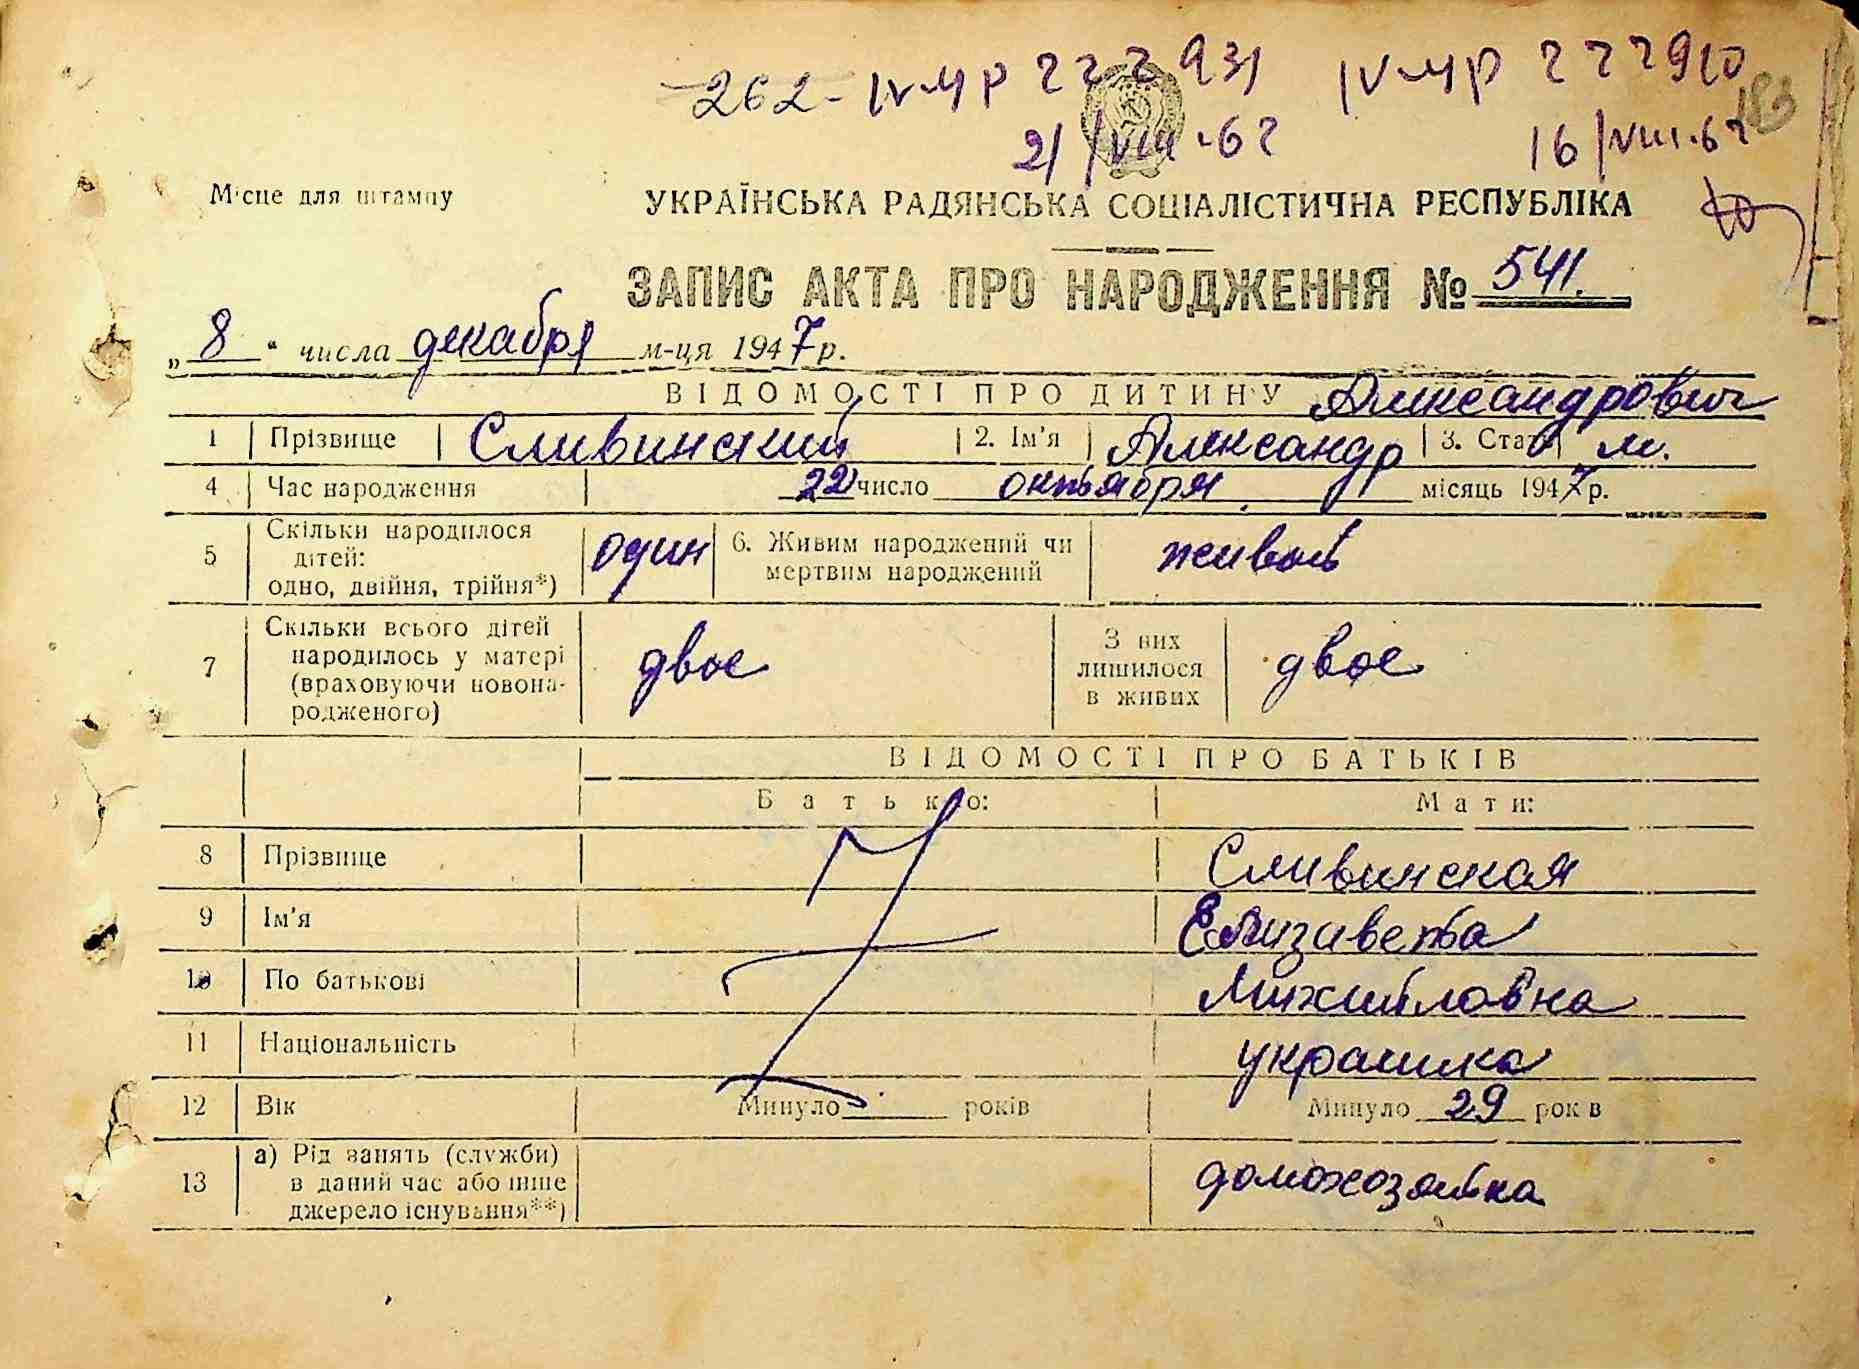 262 - IV-МР 222931 IV-МР 222910
183
21/VIII-62 16/VIII-62
Місце для штампу
УКРАЇНСЬКА РАДЯНСЬКА СОЦІАЛІСТИЧНА РЕСПУБЛІКА
ЗАПИС АКТА ПРО НАРОДЖЕННЯ № 541.
„8“ числа декабря м-ця 1947 р.
ВІДОМОСТІ ПРО ДИТИНУ Александрович
1 Прізвище Сливинский 2. Ім'я Александр 3. Стать м.
4 Час народження 22 число октября місяць 1947 р.
5 Скільки народилося дітей: одно, двійня, трійня*) один 6. Живим народжений чи мертвим народжений живой
7 Скільки всього дітей народилось у матері (враховуючи новонародженого) двое З них лишилося в живих двое
ВІДОМОСТІ ПРО БАТЬКІВ
Батько: Мати:
8 Прізвище Сливинская
9 Ім'я Елизавета
10 По батькові Михайловна
11 Національність украинка
12 Вік Минуло років Минуло 29 років
13 а) Рід занять (служби) в даний час або інше джерело існування**) домохозяйка